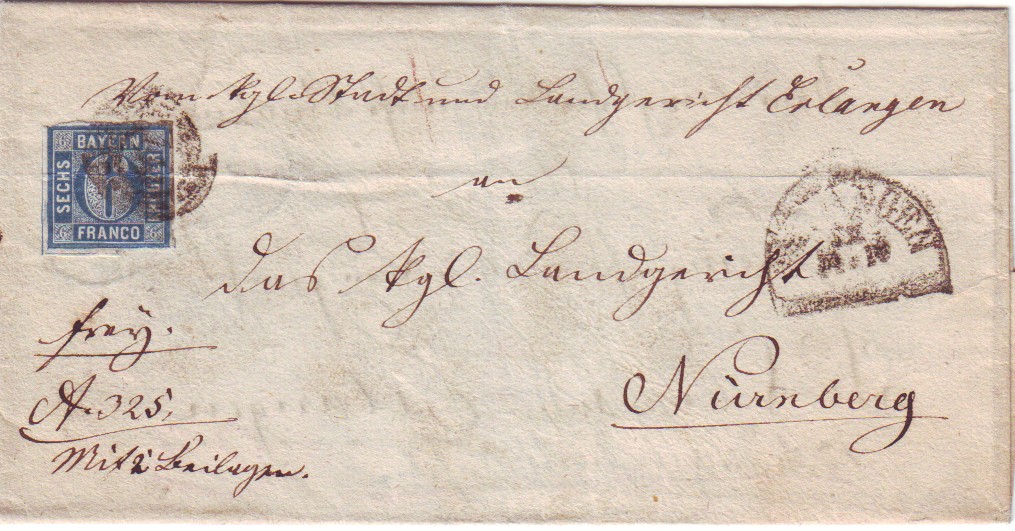 Vom kgl. Stadt und Landgericht Erlangen
an
das kgl. Landgericht
Nürnberg
frey.
Mit 2 Beilagen.
BAYERN
SECHS
KREUZER
6
FRANCO
6 6